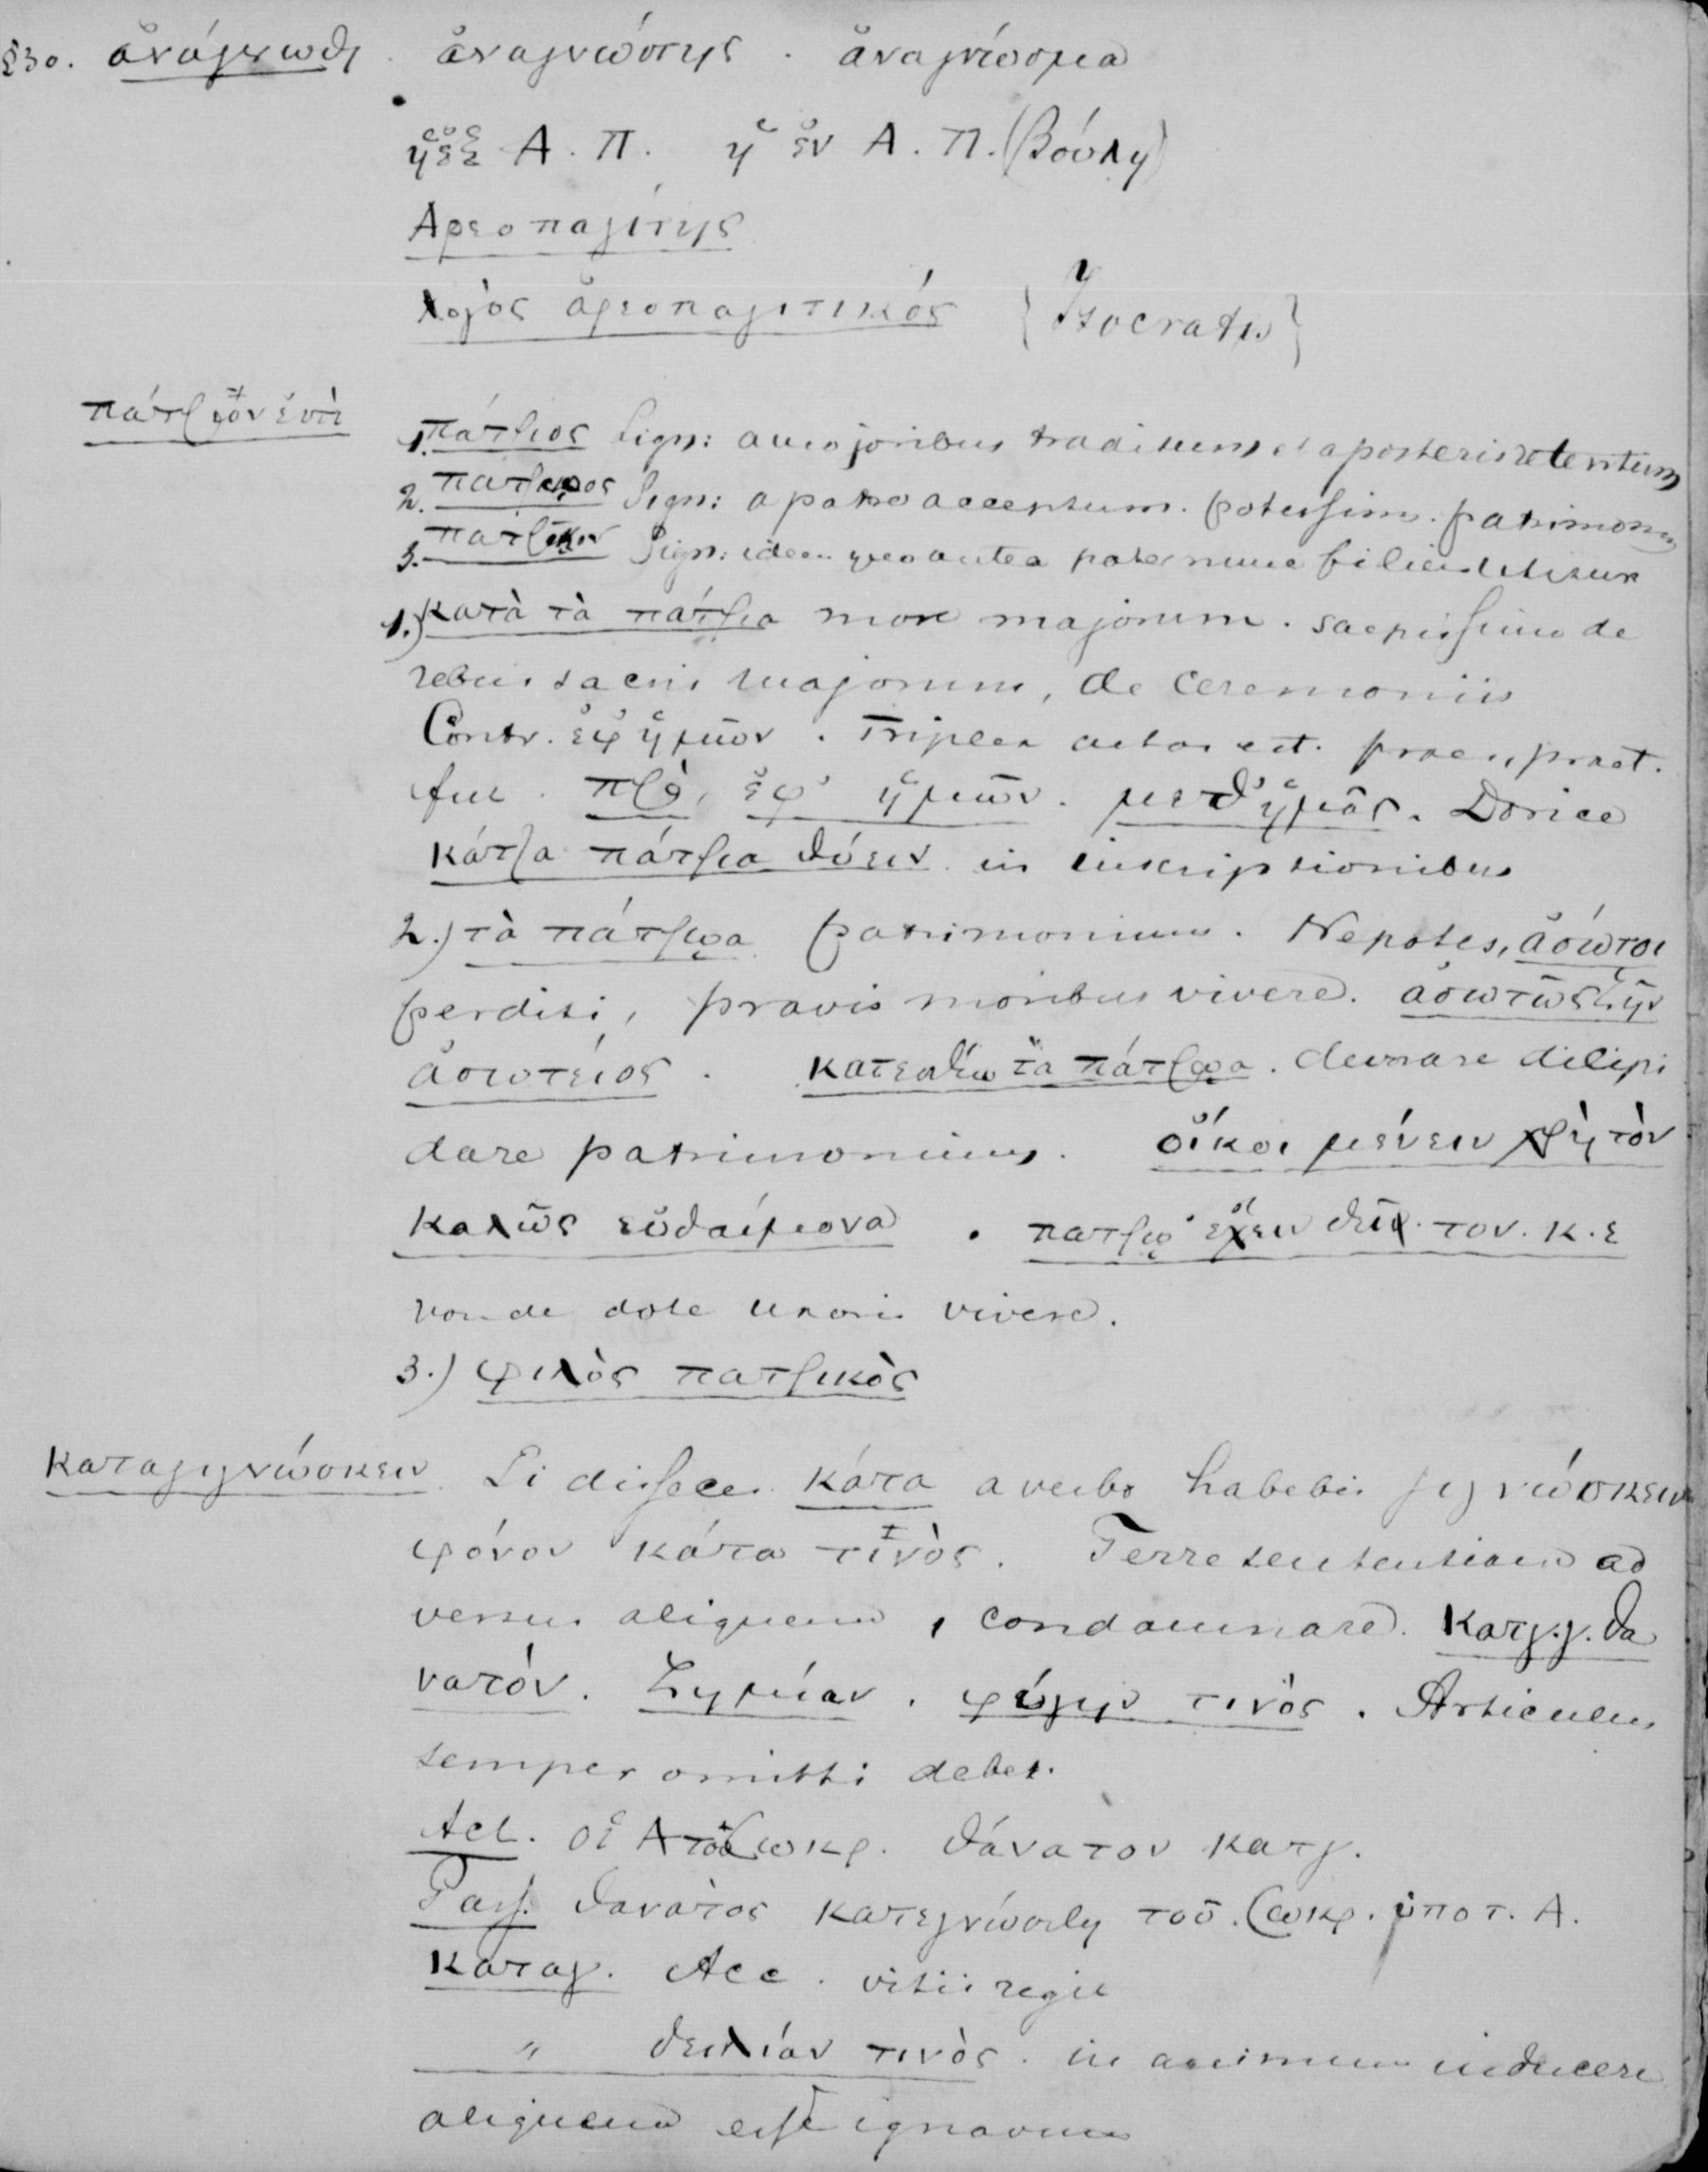 §30. ἀνάγνωθι . ἀναγνώστης . ἀναγνώσμα
ἡ ἐξ Α. Π. ἡ ἐν Α. Π. (Βούλη)
Αρεοπαγίτης
λογὸς ἀρεοπαγιτικός {Isocratis}
πάτρῳόν ἐστι
1. πάτριος Sign: a majoribus traditum et a posteris retentum
2. πατρῳος Sign: a patre acceptum. potissim. patrimon
3. πατρικὸν Sign: idem quo antea pater nunc filius utitur
1.) κατὰ τὰ πάτρια more majorum. saepissime de
rebus sacris majorum, de ceremoniis
Contr. ἐφ' ἡμῶν. Triplex aetas est. praes, praet.
fut. πρὸ, ἐφ' ἡμῶν. μεθ' ἡμᾶς. Dorice
κάτρα πάτρια θύειν in inscriptionibus
2.) τὰ πάτρῳα patrimonium. Nepotes, ἀσώτοι
perditi, pravis moribus vivere. ἀσωτῶς ζῆν
ἀσωτείος. κατεσθίω τὰ πάτρῳα. devorare dilipi
dare patrimonium. οἴκοι μένειν χρὴ τὸν
καλῶς εὐδαίμονα . πατρῳ' ἔχειν δεῖ τον. κ. ε
non de dote uxoris vivere.
3.) φιλὸς πατρικὸς
καταγιγνώσκειν Si disseces κάτα a verbo habebis γιγνώσκειν
φόνον κάτα τινὸς. Ferre sententiam ad
versus aliquem, condamnare. κατγ.γ. θα
νατόν. Ζημίαν. φύγην τινὸς. Articulus
semper omitti debet.
Act. οἱ Α τοῦ Σωκρ. θάνατον κατγ.
Pass. θανάτος κατεγνώσθη τοῦ. Σωκρ. ὑπο τ. Α.
καταγ. Acc. vitii regit
" δειλίαν τινὸς. in animum inducere
aliquem esse ignavum